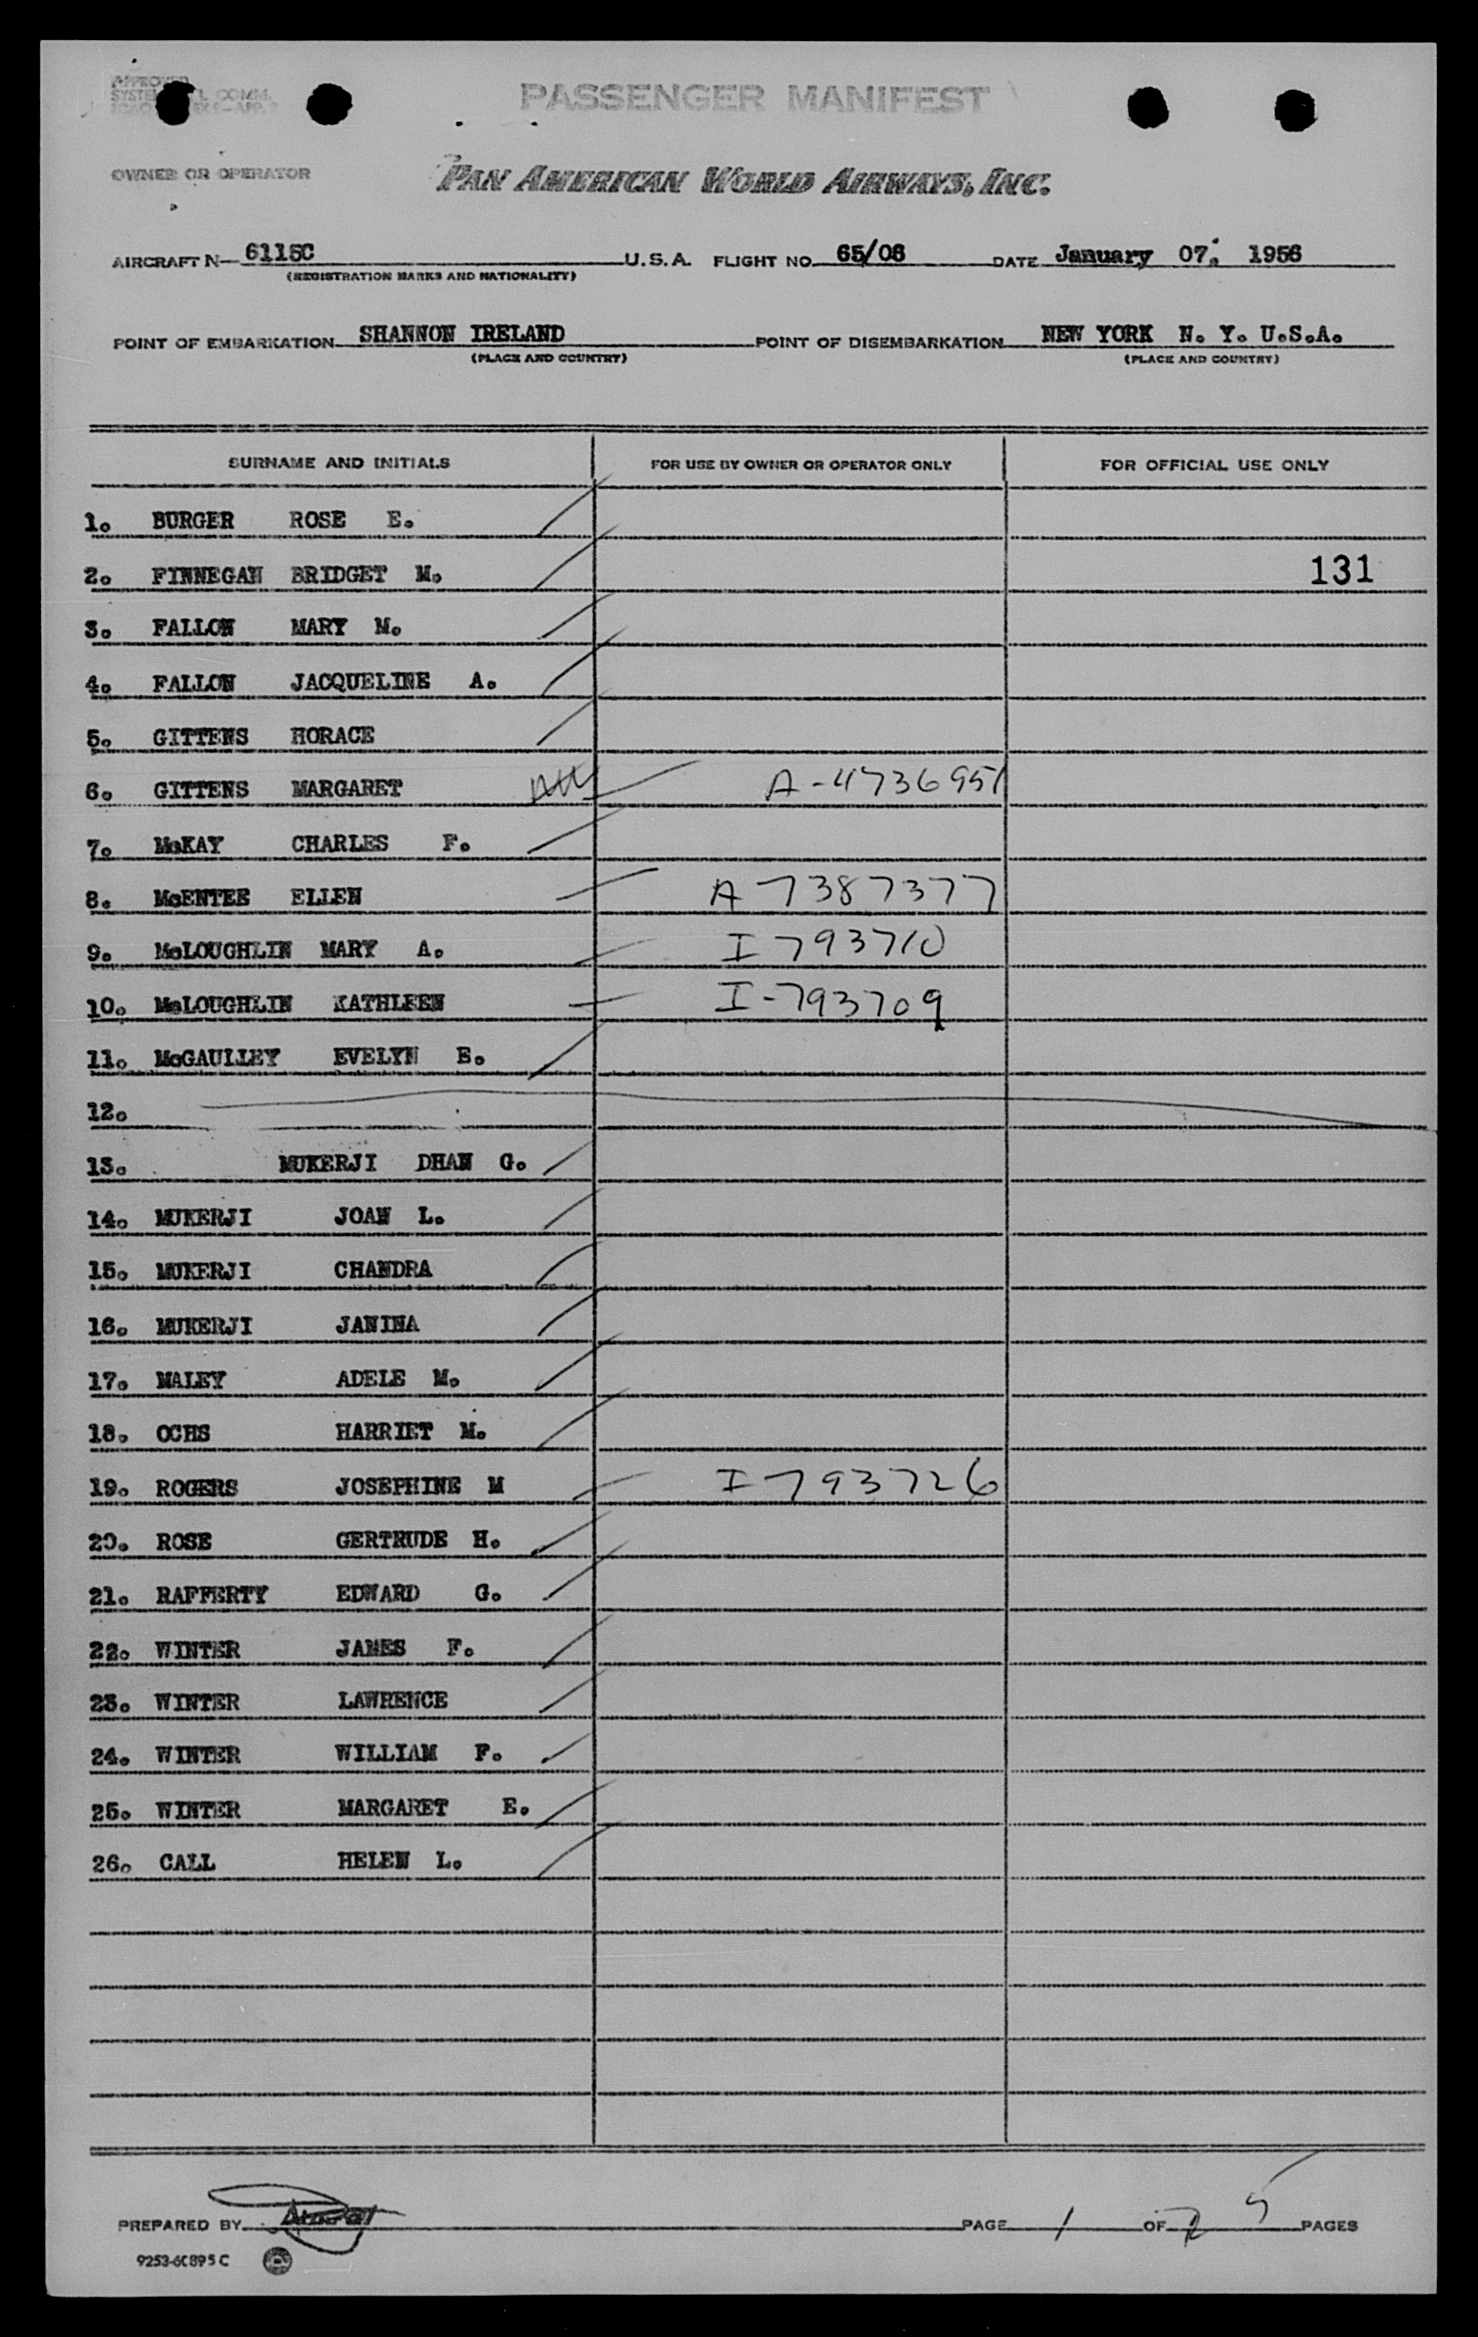 APPROVED
PASSENGER MANIFEST
OWNER OR OPERATOR PAN AMERICAN WORLD AIRWAYS, INC.
AIRCRAFT N- 6115C U.S.A. FLIGHT NO. 65/06 DATE January 07, 1956
(REGISTRATION MARKS AND NATIONALITY)
POINT OF EMBARKATION SHANNON IRELAND POINT OF DISEMBARKATION NEW YORK N. Y. U.S.A.
(PLACE AND COUNTRY) (PLACE AND COUNTRY)
SURNAME AND INITIALS FOR USE BY OWNER OR OPERATOR ONLY FOR OFFICIAL USE ONLY
1. BURGER ROSE E.
2. FINNEGAN BRIDGET M. 131
3. FALLON MARY M.
4. FALLON JACQUELINE A.
5. GITTENS HORACE
6. GITTENS MARGARET A-4736951
7. McKAY CHARLES F.
8. McENTEE ELLEN A 7387377
9. McLOUGHLIN MARY A. I 793710
10. McLOUGHLIN KATHLEEN I-793709
11. McGAULLEY EVELYN E.
12.
13. MUKERJI DHAN G.
14. MUKERJI JOAN L.
15. MUKERJI CHANDRA
16. MUKERJI JANINA
17. MALEY ADELE M.
18. OCHS HARRIET M.
19. ROGERS JOSEPHINE M I 793726
20. ROSE GERTRUDE H.
21. RAFFERTY EDWARD G.
22. WINTER JAMES F.
23. WINTER LAWRENCE
24. WINTER WILLIAM F.
25. WINTER MARGARET E.
26. CALL HELEN L.
PREPARED BY PAGE 1 OF 2 5 PAGES
9253-6C895C